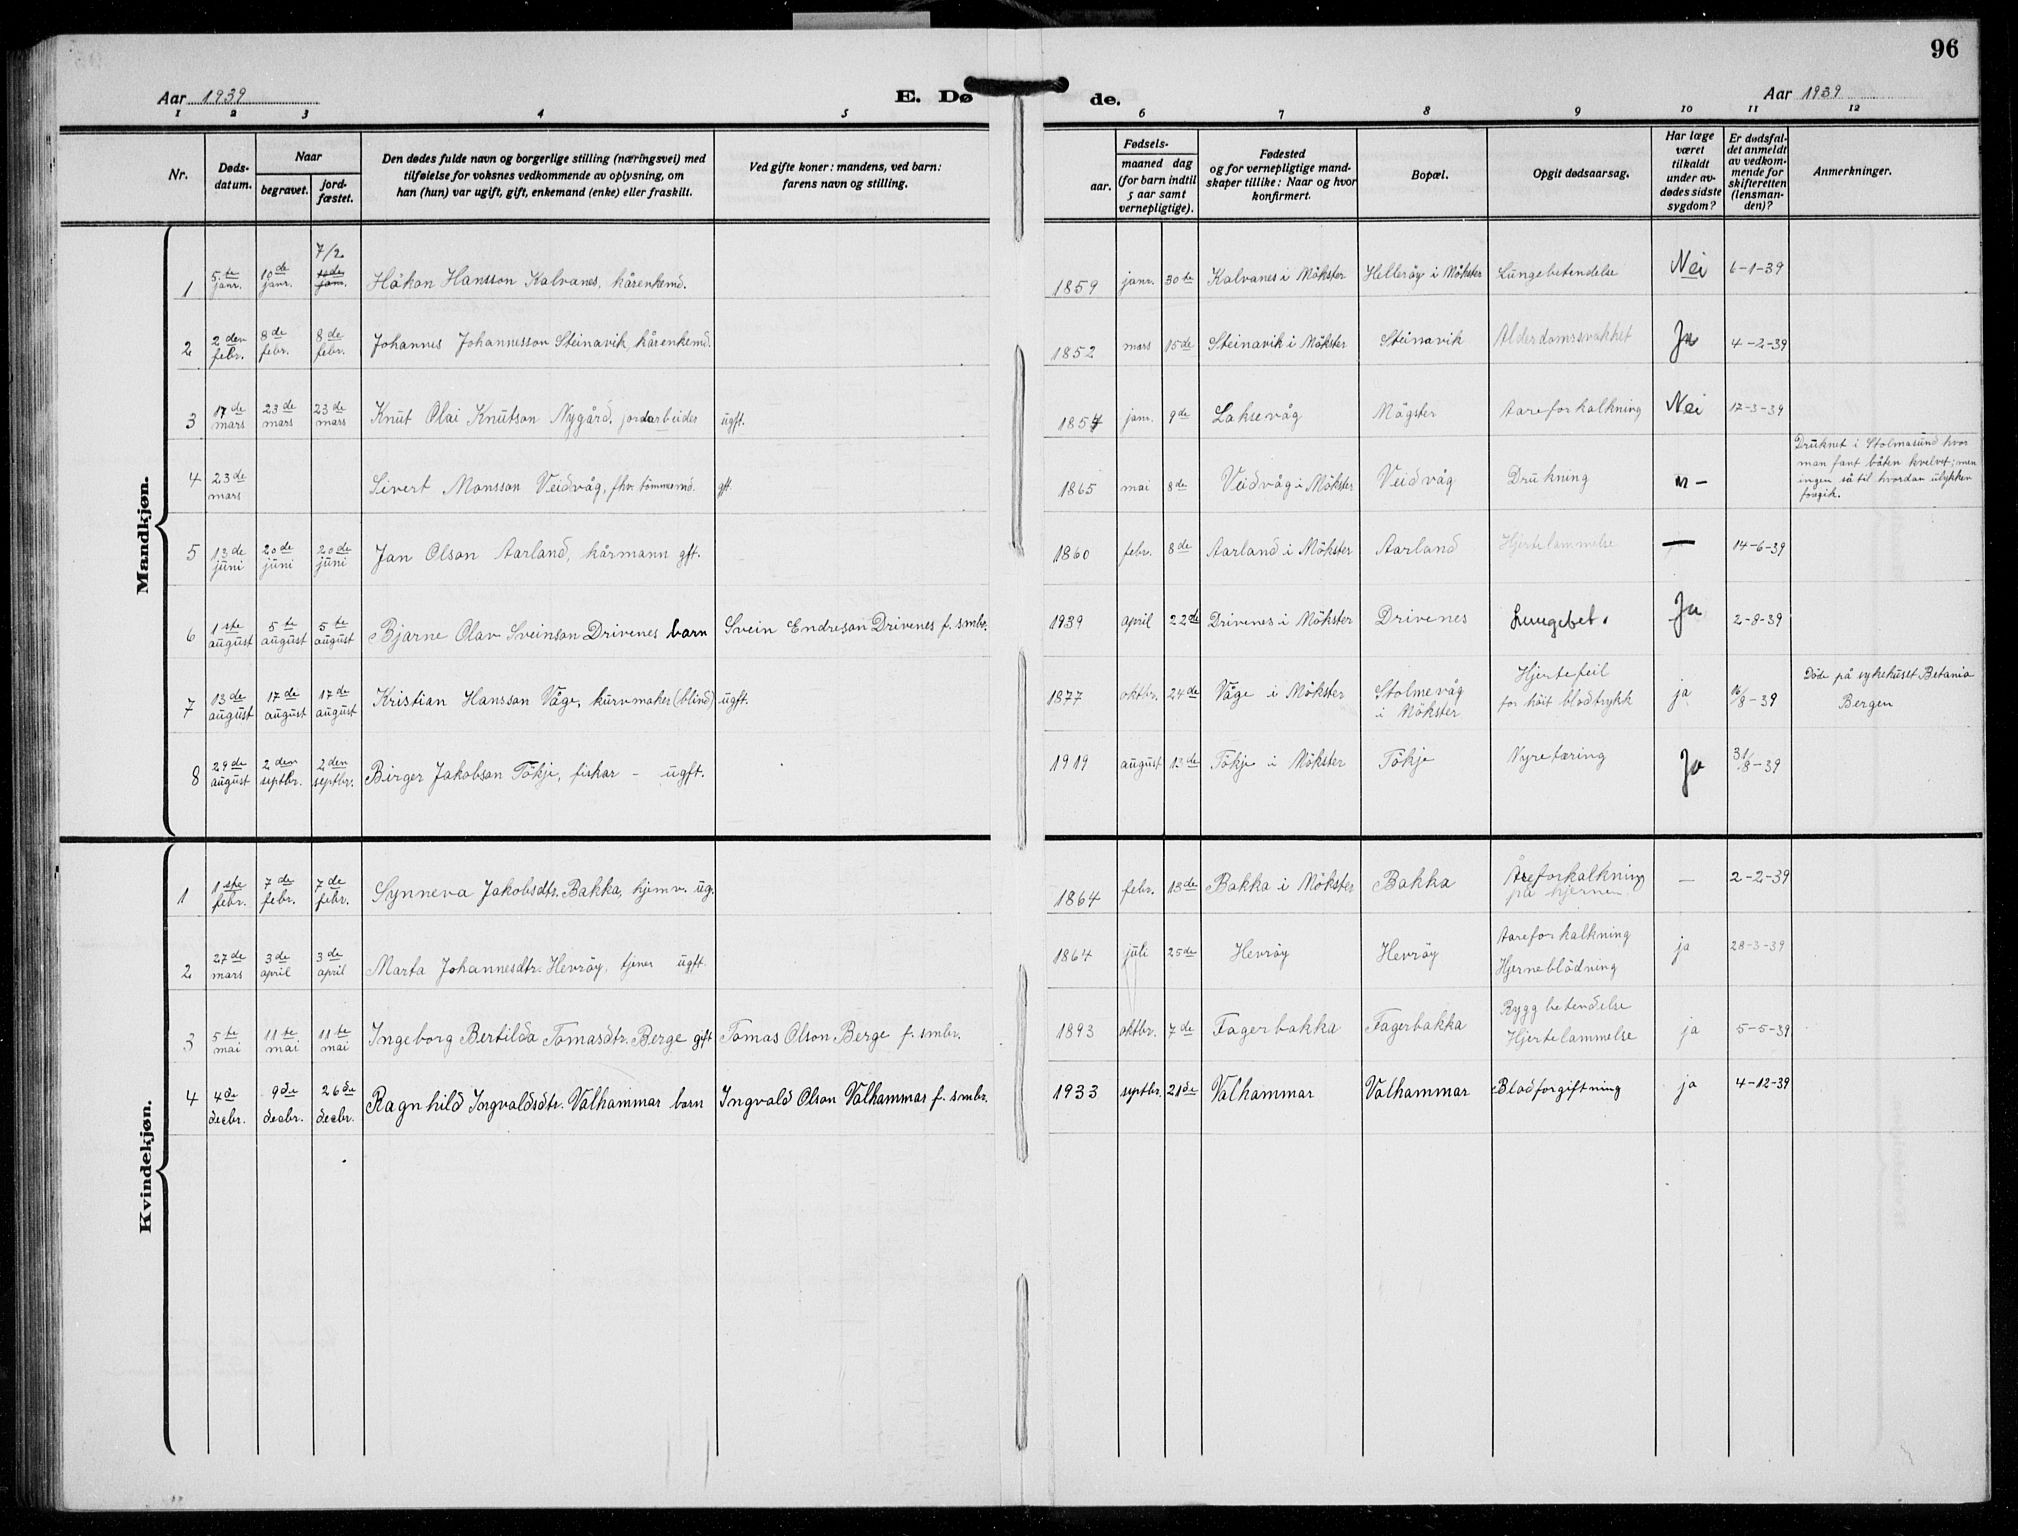 96
Aar 1939
E. Dø
de.
Aar 1939
1 2 3 4 5 6 7 8 9 10 11 12
Nr.
Døds-
datum.
Naar
begravet.
jord-
fæstet.
Den dødes fulde navn og borgerlige stilling (næringsvei) med
tilføielse for voksnes vedkommende av oplysning, om
han (hun) var ugift, gift, enkemand (enke) eller fraskilt.
Ved gifte koner: mandens, ved barn:
farens navn og stilling.
Fødsels-
aar.
maaned dag
(for barn indtil
5 aar samt
vernepligtige).
Fødested
og for vernepligtige mand-
skaper tillike: Naar og hvor
konfirmert.
Bopæl.
Opgit dødsaarsag.
Har læge
været
tilkaldt
under av-
dødes sidste
sygdom?
Er dødsfal-
det anmeldt
av vedkom-
mende for
skifteretten
(lensman-
den)?
Anmerkninger.
Mandkjøn.
1 5te janr. 10de janr. 7/2 10de janr. Håkon Hansson Kalvanes, kårenkemd. 1859 janr. 30te Kalvanes i Mökster Helleröy i Mökster Lungebetendelse Nei 6-1-39
2 2den febr. 8de febr. 8de febr. Johannes Johannesson Steinavik kårenkemd. 1852 mars 15de Steinavik i Mökster Steinavik Alderdomssvakhet Ja 4-2-39
3 17de mars 23de mars 23de mars Knut Olai Knutson Nygård, jordarbeider ugft. 1857 janr. 9de Laksevåg Mögster Aareforkalkning Nei 17-3-39
4 23de mars Sivert Monsson Veidvåg, fhv. tömmermd. gft. 1865 mai 8de Veidvåg i Mökster Veidvåg Drukning n -
Druknet i Stolmasund hvor
man fant båten kvelvet; men
ingen så til hvordan ulykken
forgik.
5 13de juni 20de juni 20de juni Jan Olson Aarland, kårmann gft. 1860 febr. 8de Aarland i Mökster Aarland Hjertelammelse — 14-6-39
6 1ste august 5te august 5te august Bjarne Olav Sveinson Drivenes barn Svein Endreson Drivenes f. smbr. 1939 april 22de Drivenes i Mökster Drivenes Lungebet. Ja 2-8-39
7 13de august 17de august 17de august Kristian Hansson Våge, kurvmaker (blind) ugft. 1877 oktbr. 24de Våge i Mökster Stolmevåg i Mökster Hjertefeil for höit blodtrykk ja 16/8-39
Döde på sykehuset Betania
Bergen
8 29de august 2den septbr. 2den septbr. Birger Jakobson Tökje, fiskar - ugft. 1919 august 13de Tökje i Mökster Tökje Nyretæring Ja 31/8-39
Kvindekjøn.
1 1ste febr. 7de febr. 7de febr. Synneva Jakobsdtr. Bakka, hjemv. ug. 1864 febr. 13de Bakka i Mökster Bakka Åreforkalkning på hjernen — 2-2-39
2 27de mars 3de april 3de april Marta Johannesdtr. Hevröy, tjener ugft. 1864 juli 25de Hevröy Hevröy Aareforkalkning Hjerneblödning ja 28-3-39
3 5te mai 11te mai 11te mai Ingeborg Bertilda Tomasdtr. Berge gift Tomas Olson Berge f. smbr. 1893 oktbr. 7de Fagerbakka Fagerbakka Rygg betendelse Hjertelammelse ja 5-5-39
4 4de decbr. 9de decbr. 26de decbr. Ragnhild Ingvaldsdtr. Valhammar barn Ingvald Olson Valhammar f. smbr. 1933 septbr. 21de Valhammar Valhammar Blodforgiftning ja 4-12-39